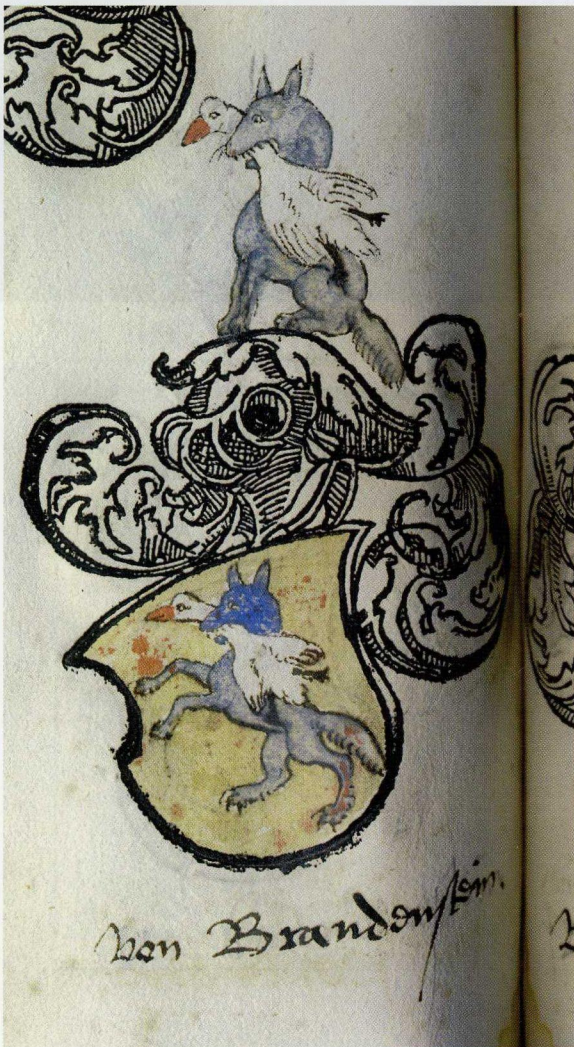 von Brandenstein.